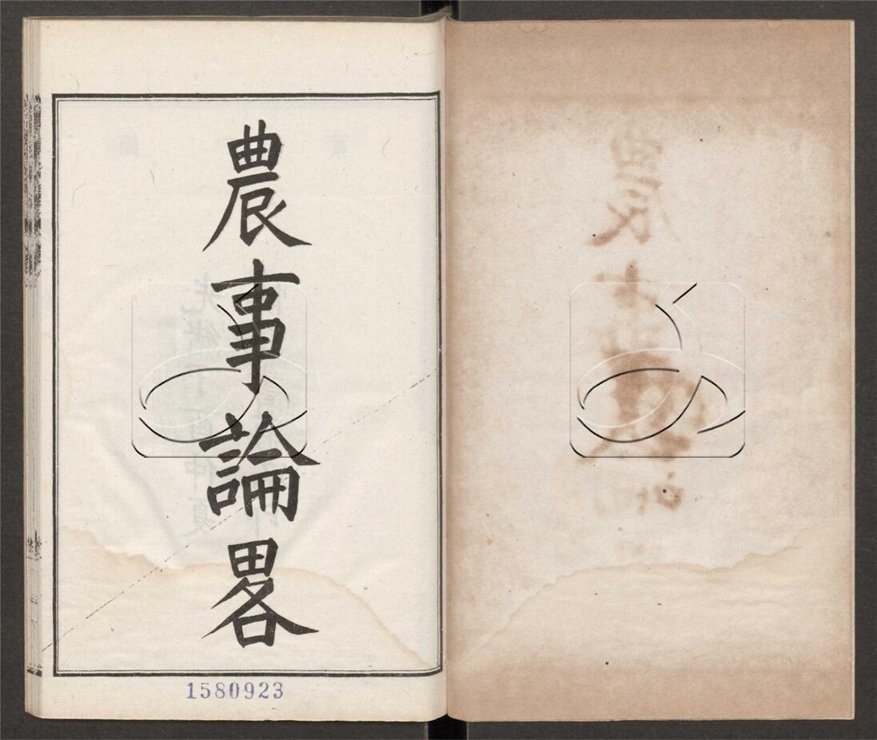 農事論畧
1580923